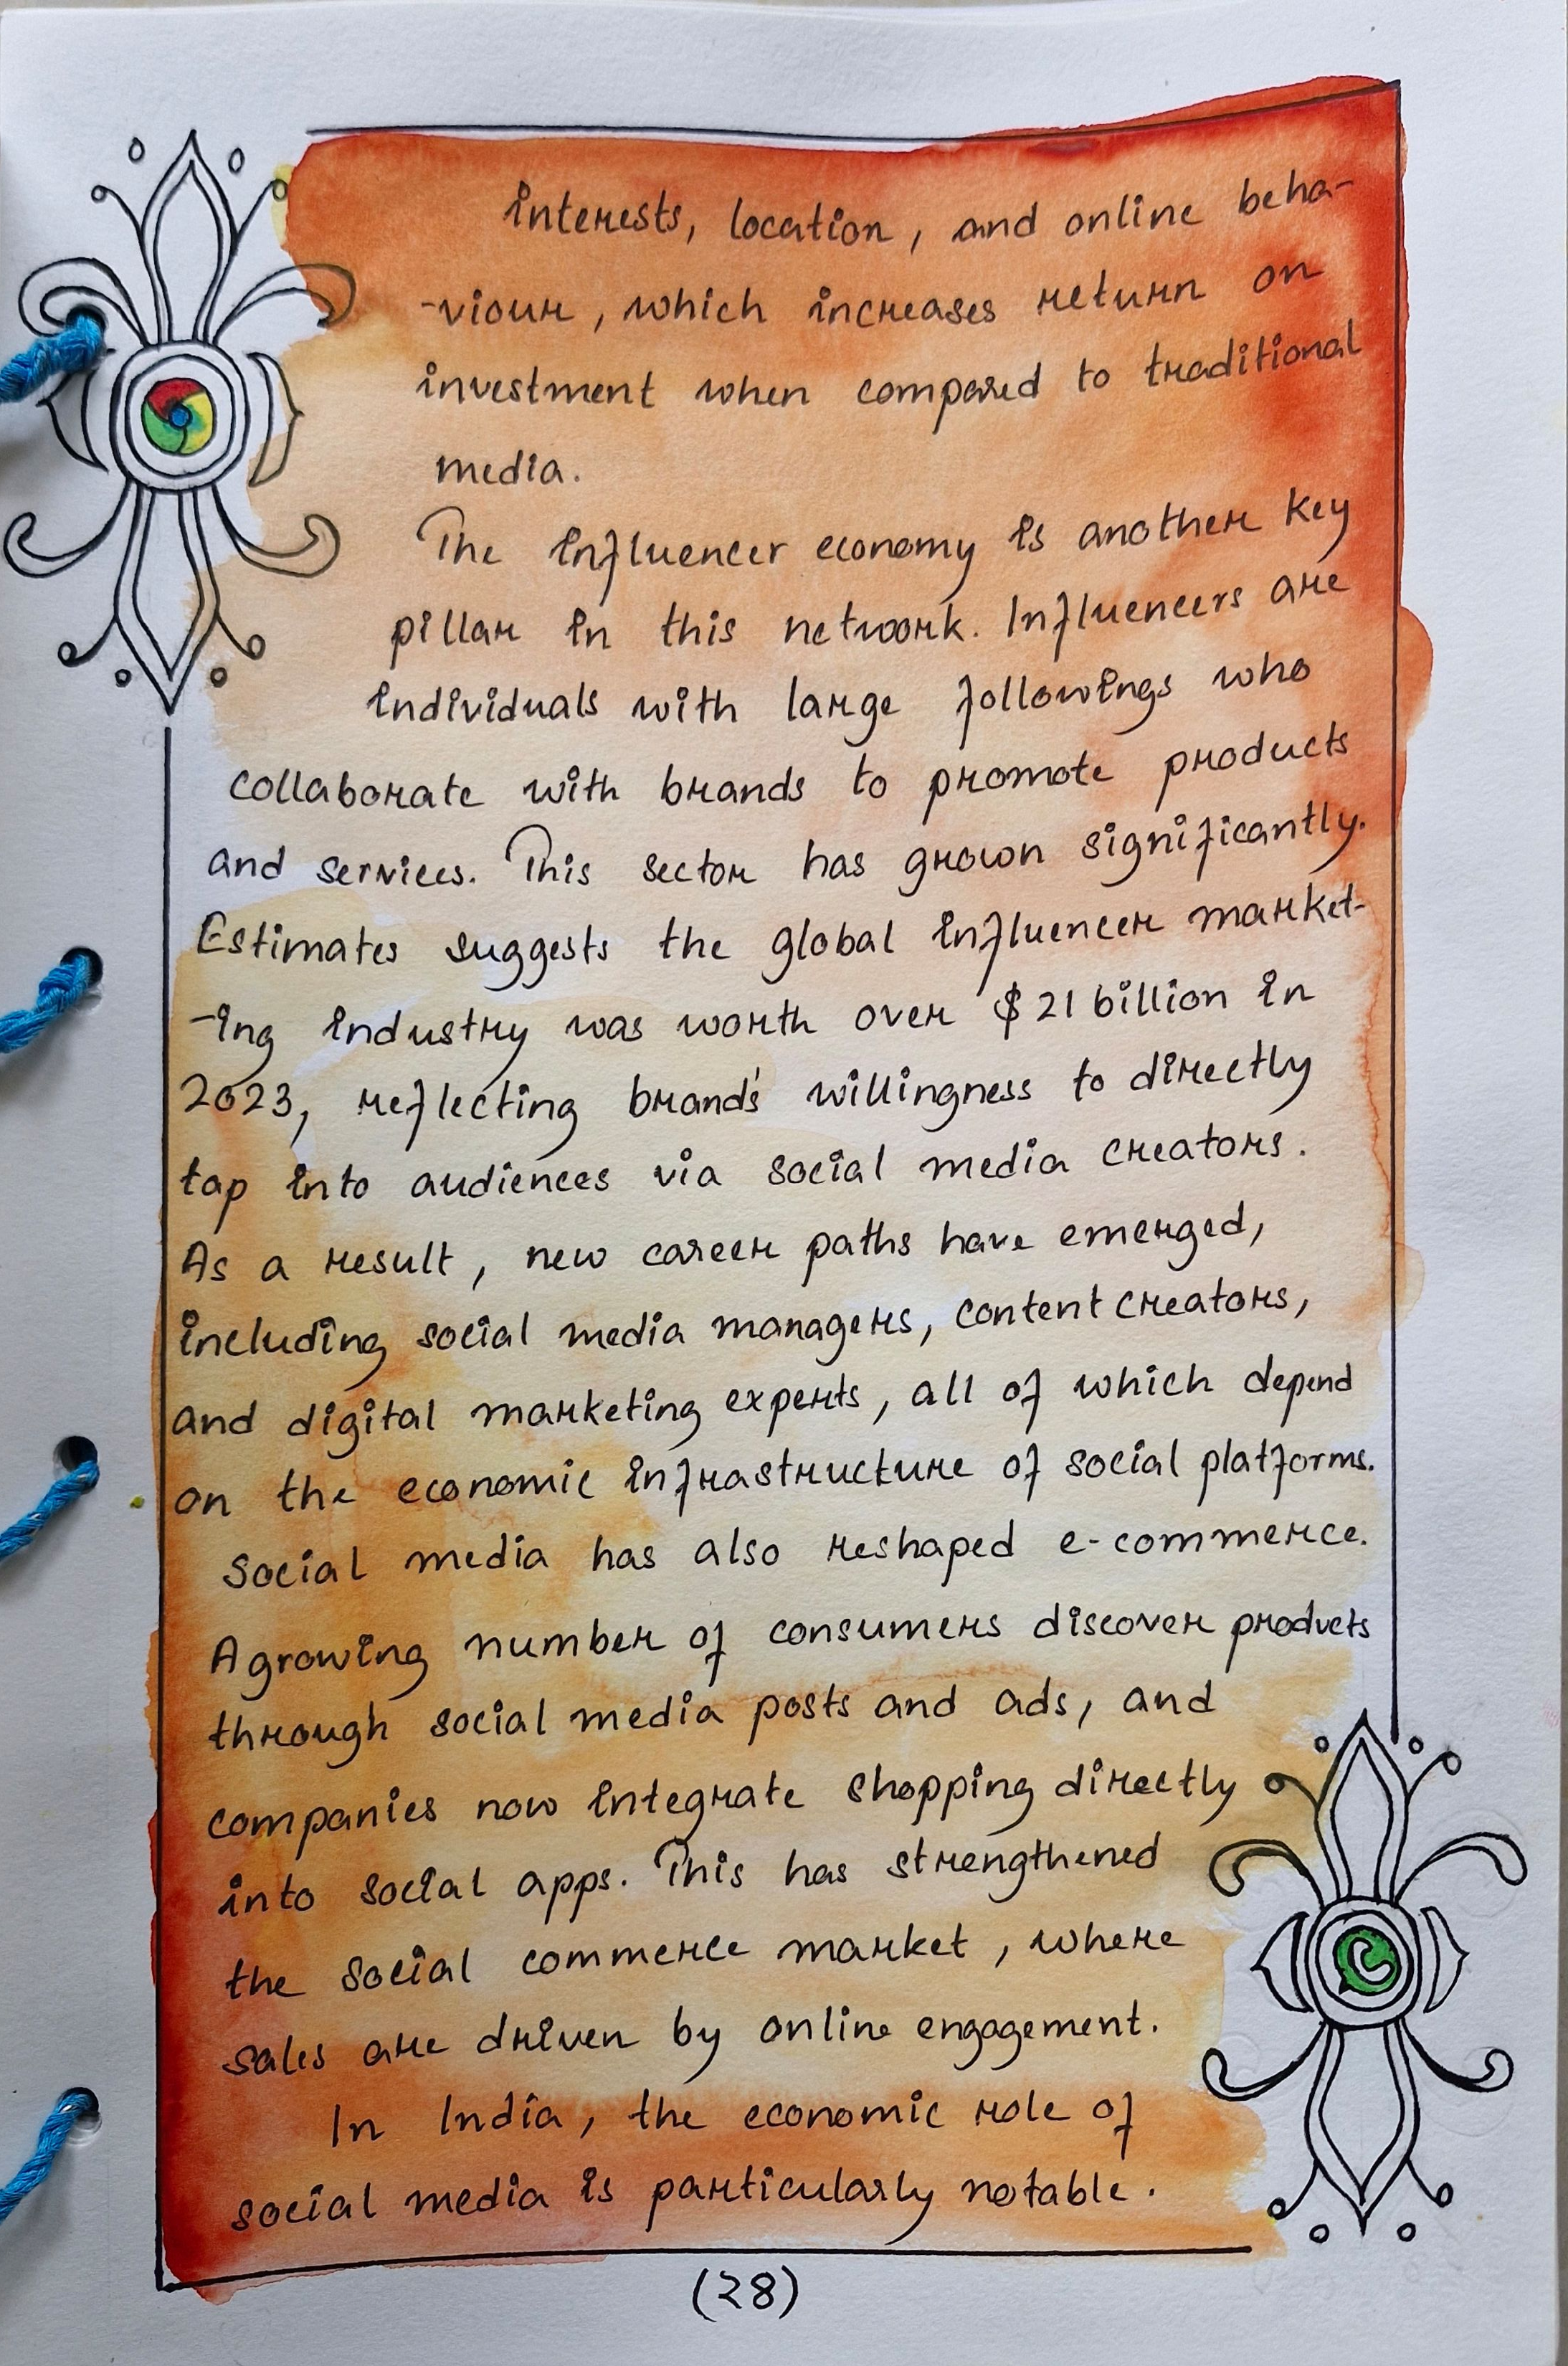 interests, location, and online beha-
-viour, which increases return on
investment when compared to traditional
media.
The influencer economy is another key
pillar in this network. Influencers are
individuals with large followings who
collaborate with brands to promote products
and services. This sector has grown significantly.
Estimates suggests the global influencer market-
-ing industry was worth over $21 billion in
2023, reflecting brand's willingness to directly
tap into audiences via social media creators.
As a result, new career paths have emerged,
including social media managers, content creators,
and digital marketing experts, all of which depend
on the economic infrastructure of social platforms.
Social media has also reshaped e-commerce.
A growing number of consumers discover products
through social media posts and ads, and
companies now integrate shopping directly
into social apps. This has strengthened
the social commerce market, where
sales are driven by online engagement.
In India, the economic role of
social media is particularly notable.
(28)